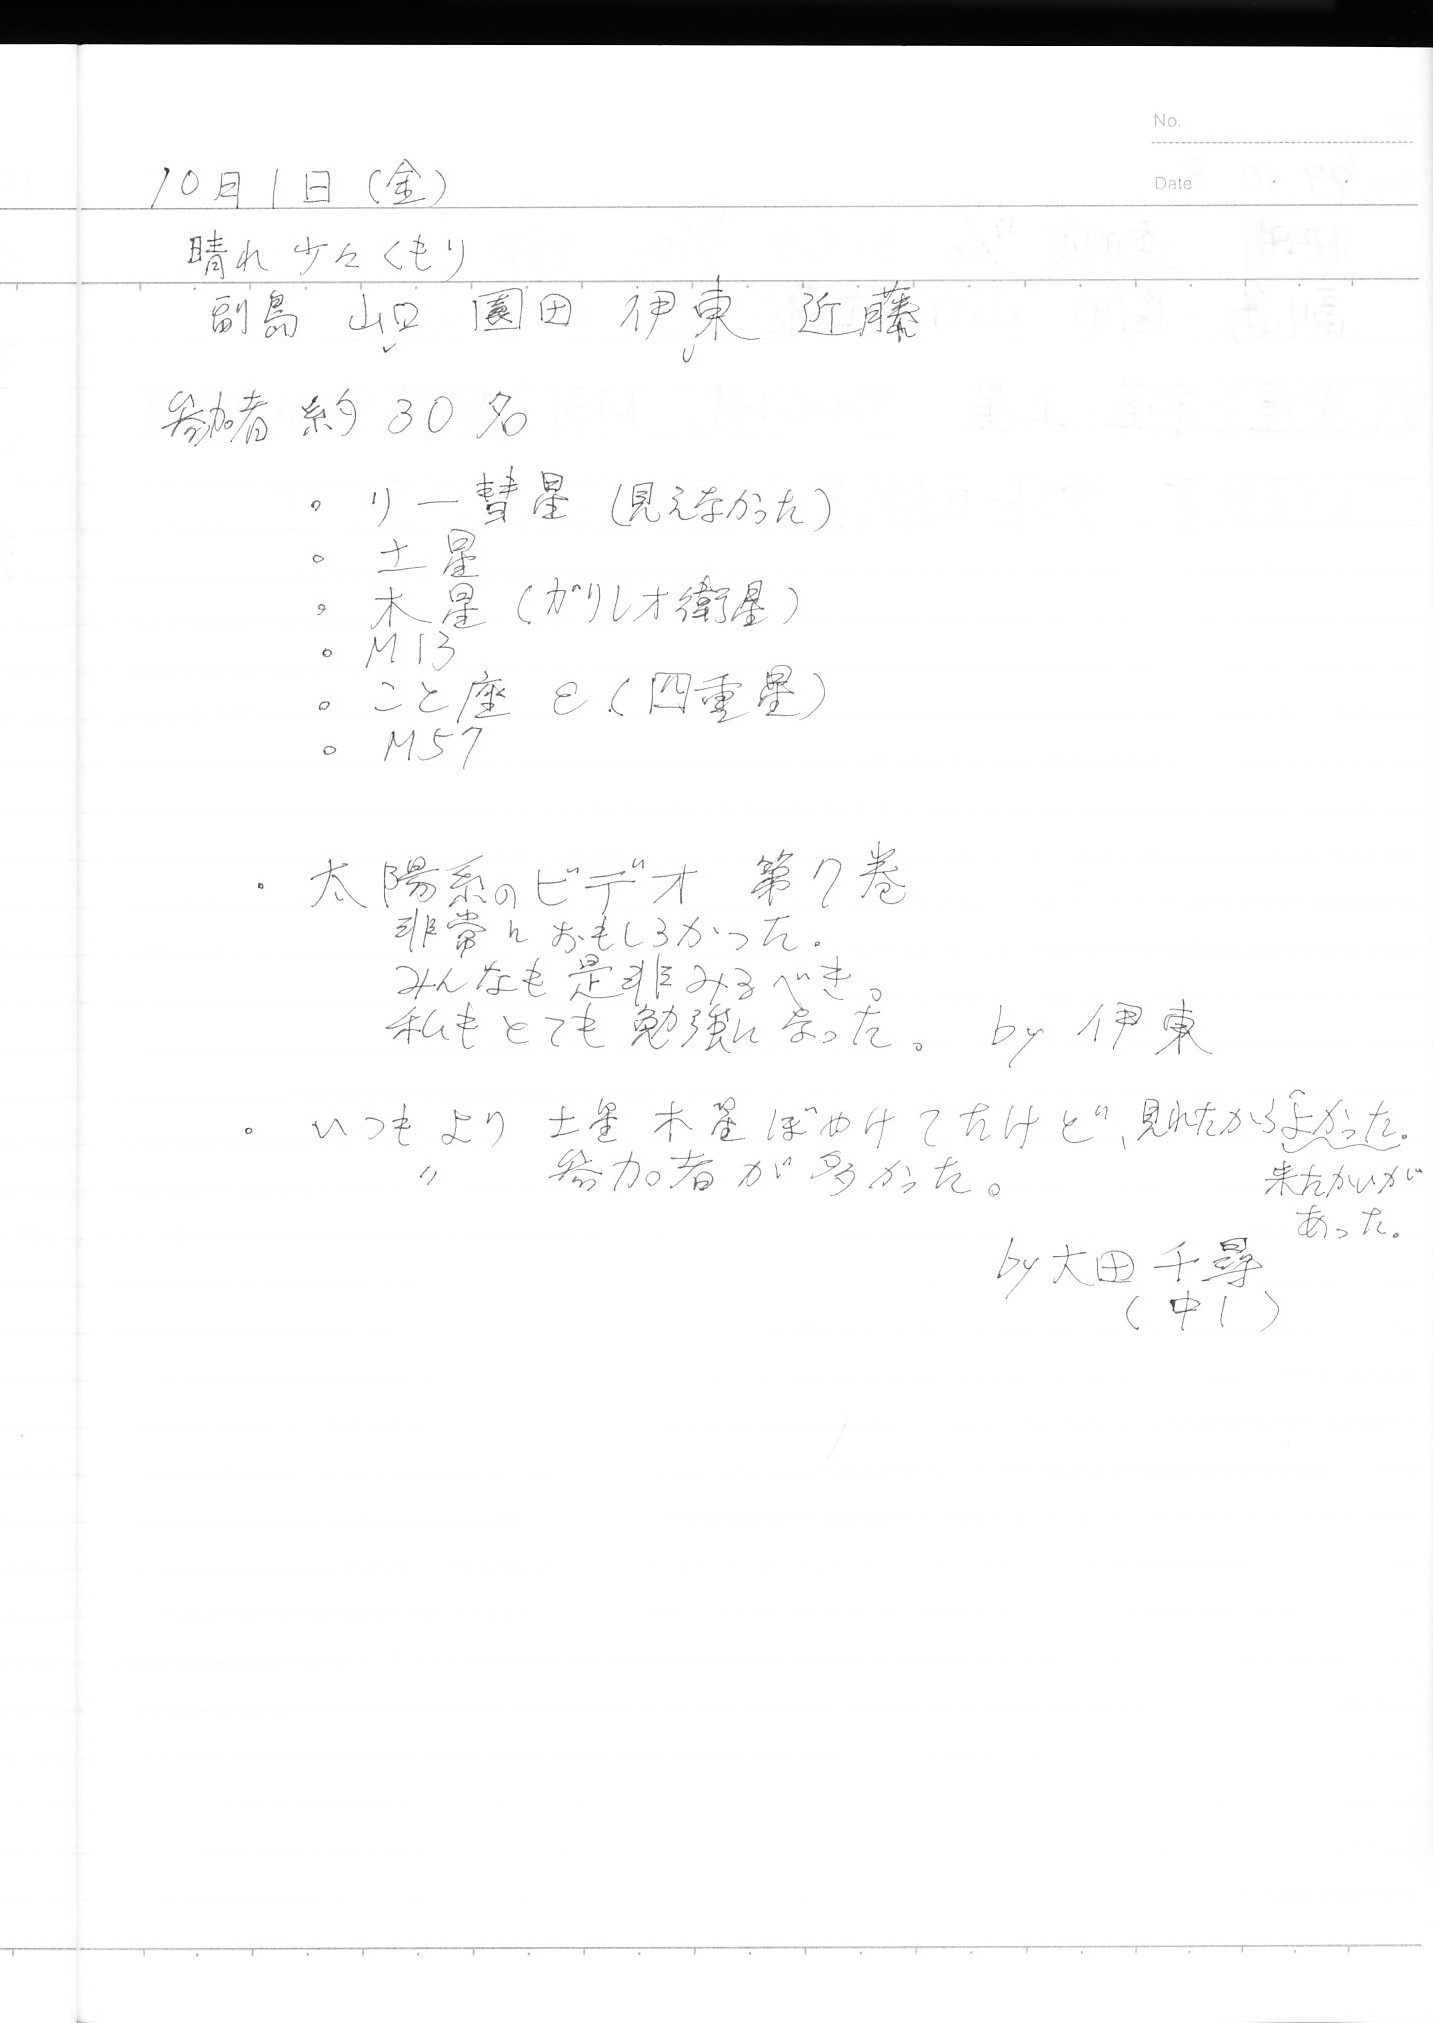 No.
Date
10月1日(金)
晴れ 少々くもり
副島 山口 園田 伊東 近藤
参加者 約30名
。リー彗星(見えなかった)
。土星
。木星(ガリレオ衛星)
。M13
。こと座 ε(四重星)
。M57
・太陽系のビデオ 第7巻
非常におもしろかった.
みんなも是非みるべき。
私もとても勉強になった。 by 伊東
。いつもより 土星 木星ぼやけてたけど、見れたからよかった。
〃 参加者が多かった。
来たかいが
あった。
by 大田 千尋
(中1)